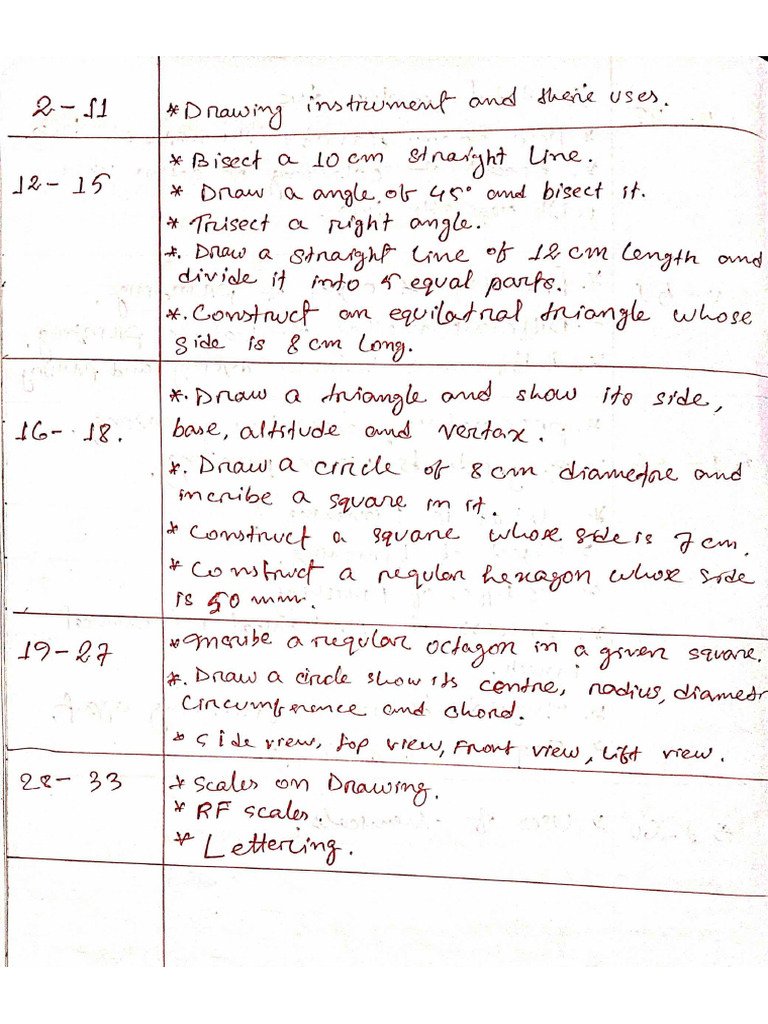 2-11 * Drawing instrument and there uses.
* Bisect a 10 cm straight line.
12-15 * Draw a angle of 45° and bisect it.
* Trisect a right angle.
*. Draw a straight line of 12 cm length and
divide it into 5 equal parts.
*. Construct an equilatral triangle whose
side is 8 cm long.
*. Draw a triangle and show its side,
16-18. base, altitude and vertax.
*. Draw a circle of 8 cm diametre and
incribe a square in it.
* Construct a square whose side is 7 cm.
* Construct a regular hexagon whose side
is 50 mm.
19-27 * Incribe a regular octagon in a given square.
*. Draw a circle show its centre, radius, diametr
circumference and chord.
* Side view, top view, Front view, lift view.
28-33 * Scales on Drawing.
* RF scales.
* Lettering.